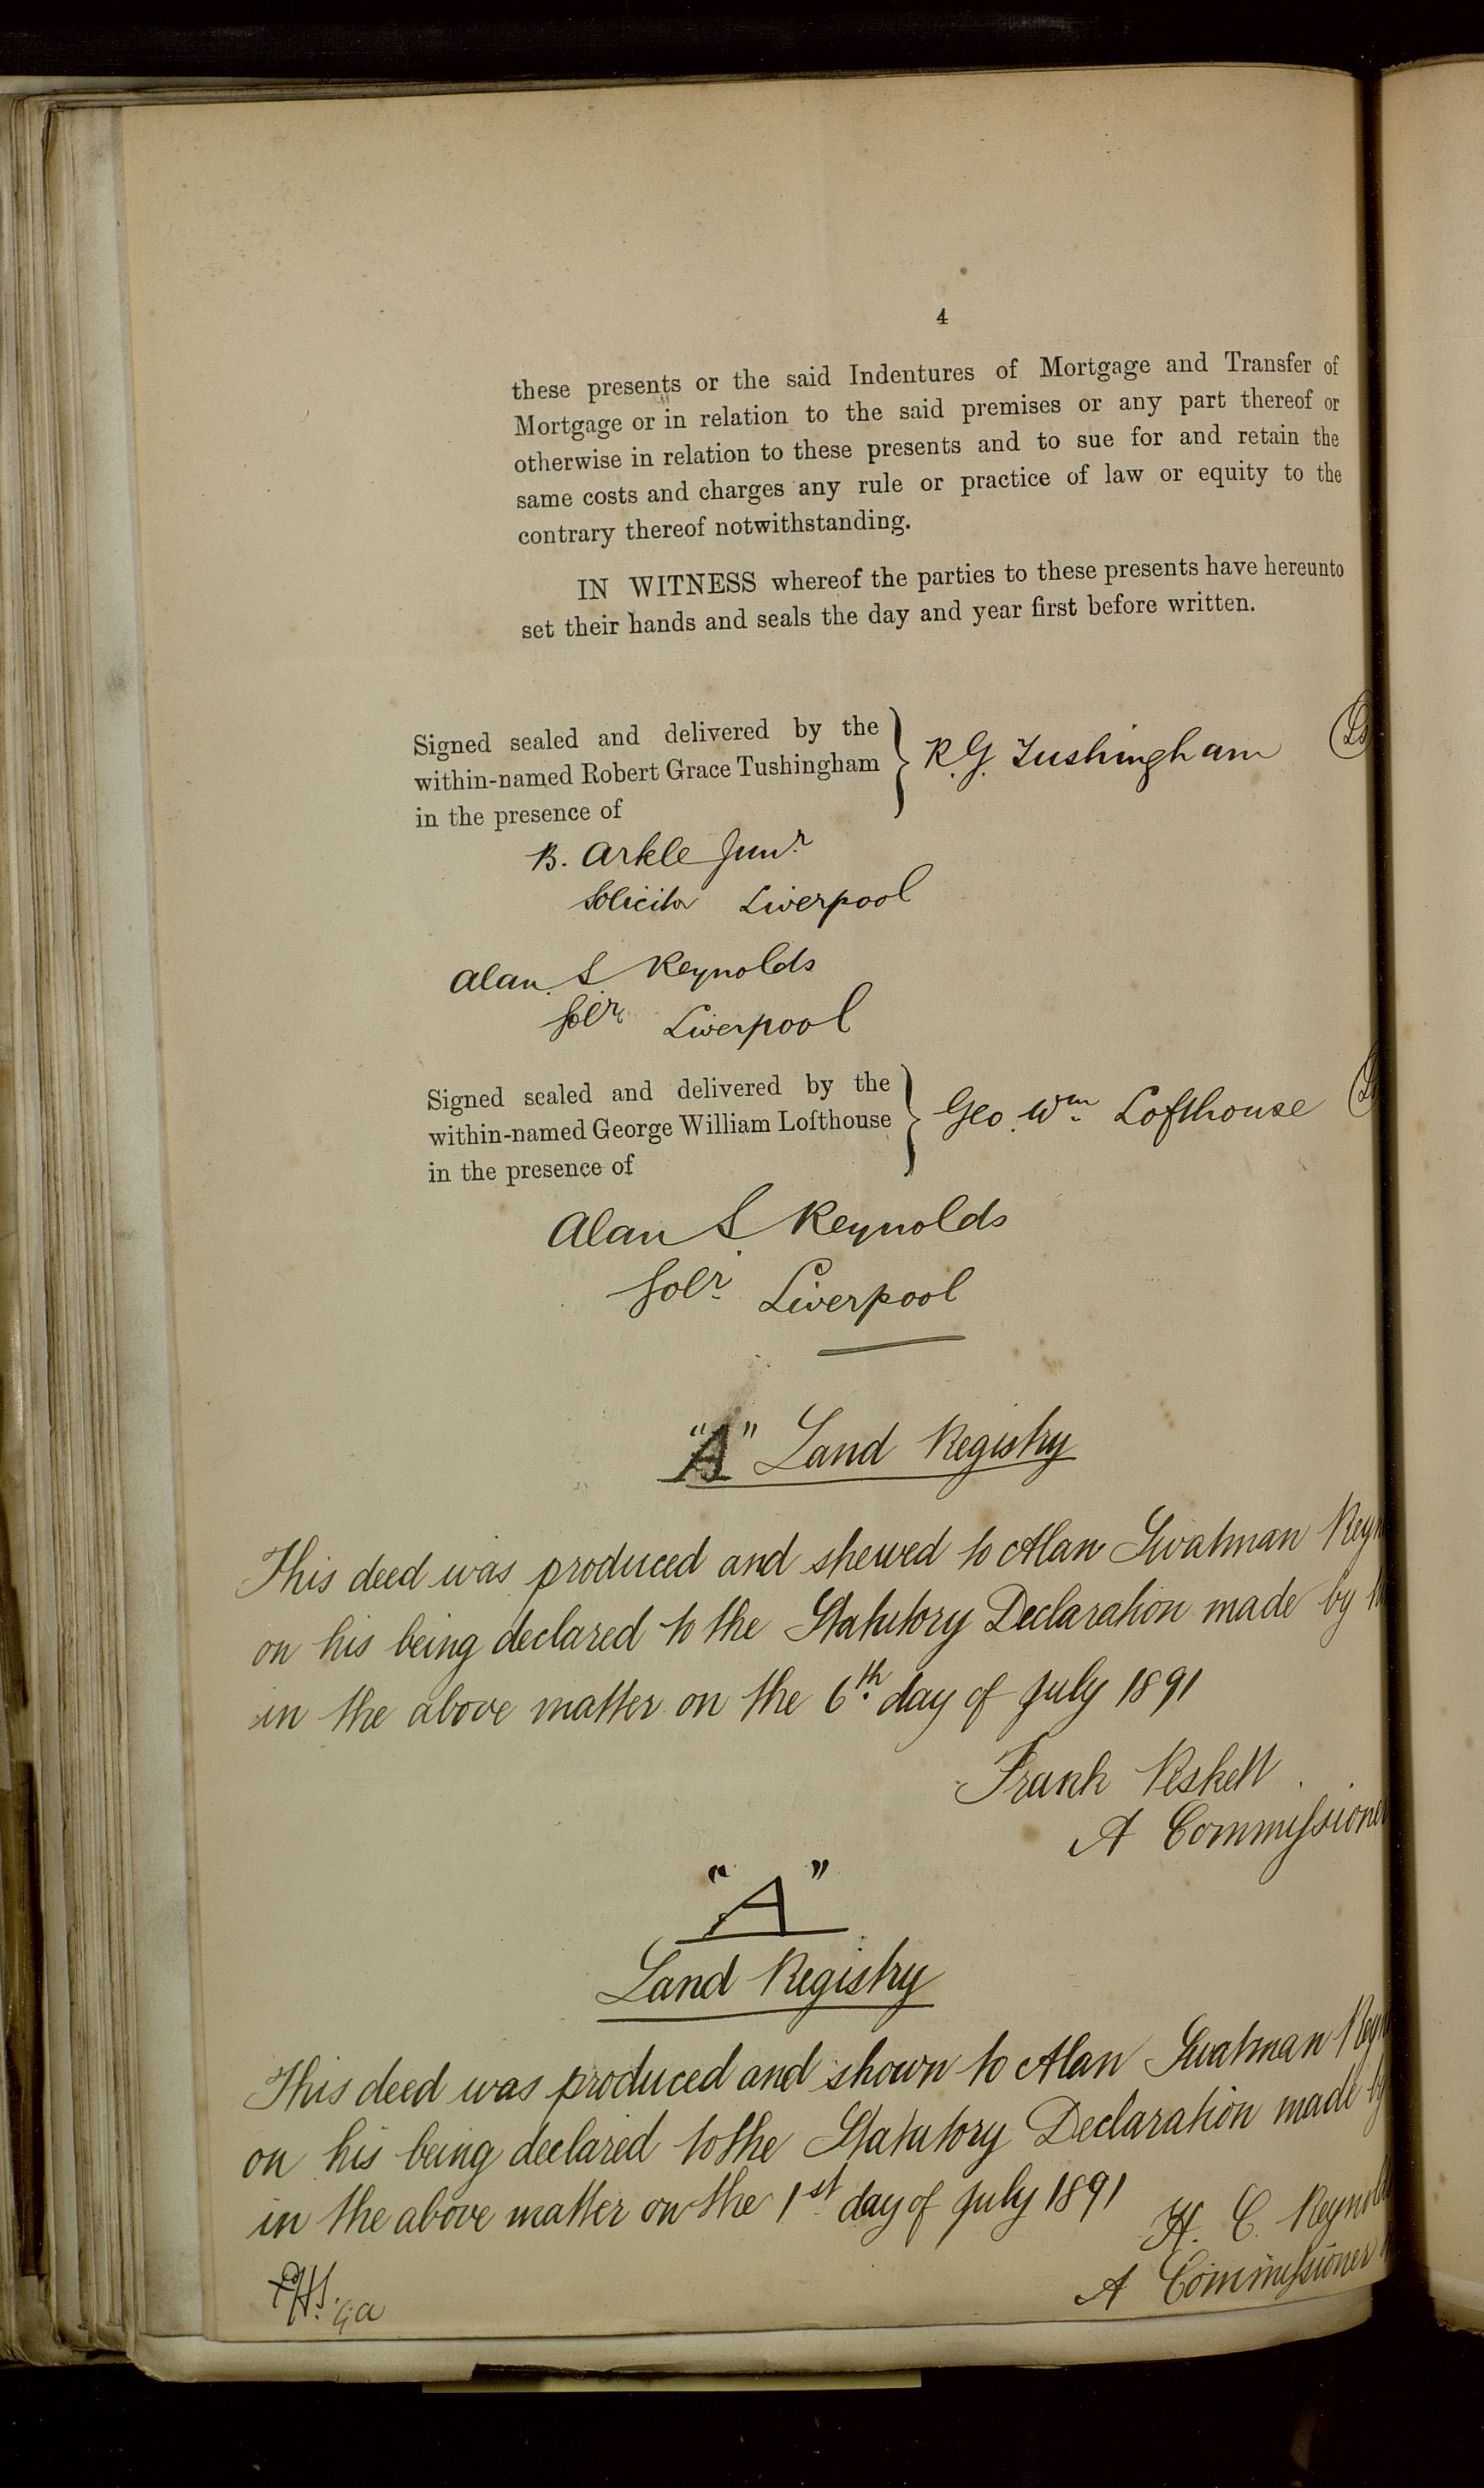 4
these presents or the said Indentures of Mortgage and Transfer of
Mortgage or in relation to the said premises or any part thereof or
otherwise in relation to these presents and to sue for and retain the
same costs and charges any rule or practice of law or equity to the
contrary thereof notwithstanding.
IN WITNESS whereof the parties to these presents have hereunto
set their hands and seals the day and year first before written.
Signed sealed and delivered by the
within-named Robert Grace Tushingham
in the presence of
R. G. Tushingham
Ls
B. Arkle Junr
Solicitor Liverpool
Alan. S. Reynolds
Solr Liverpool
Signed sealed and delivered by the
within-named George William Lofthouse
in the presence of
Geo. Wm Lofthouse
Alan S. Reynolds
Solr Liverpool
"A" Land Registry
This deed was produced and shewed to Alan Swatman Reyn
on his being declared to the Statutory Declaration made by
in the above matter on the 6th day of July 1891
Frank
A Commissioner
"A"
Land Registry
This deed was produced and shown to Alan Swatman Reyn
on his being declared to the Statutory Declaration made by
in the above matter on the 1st day of July 1891
H. C. Reynold
A Commissioner